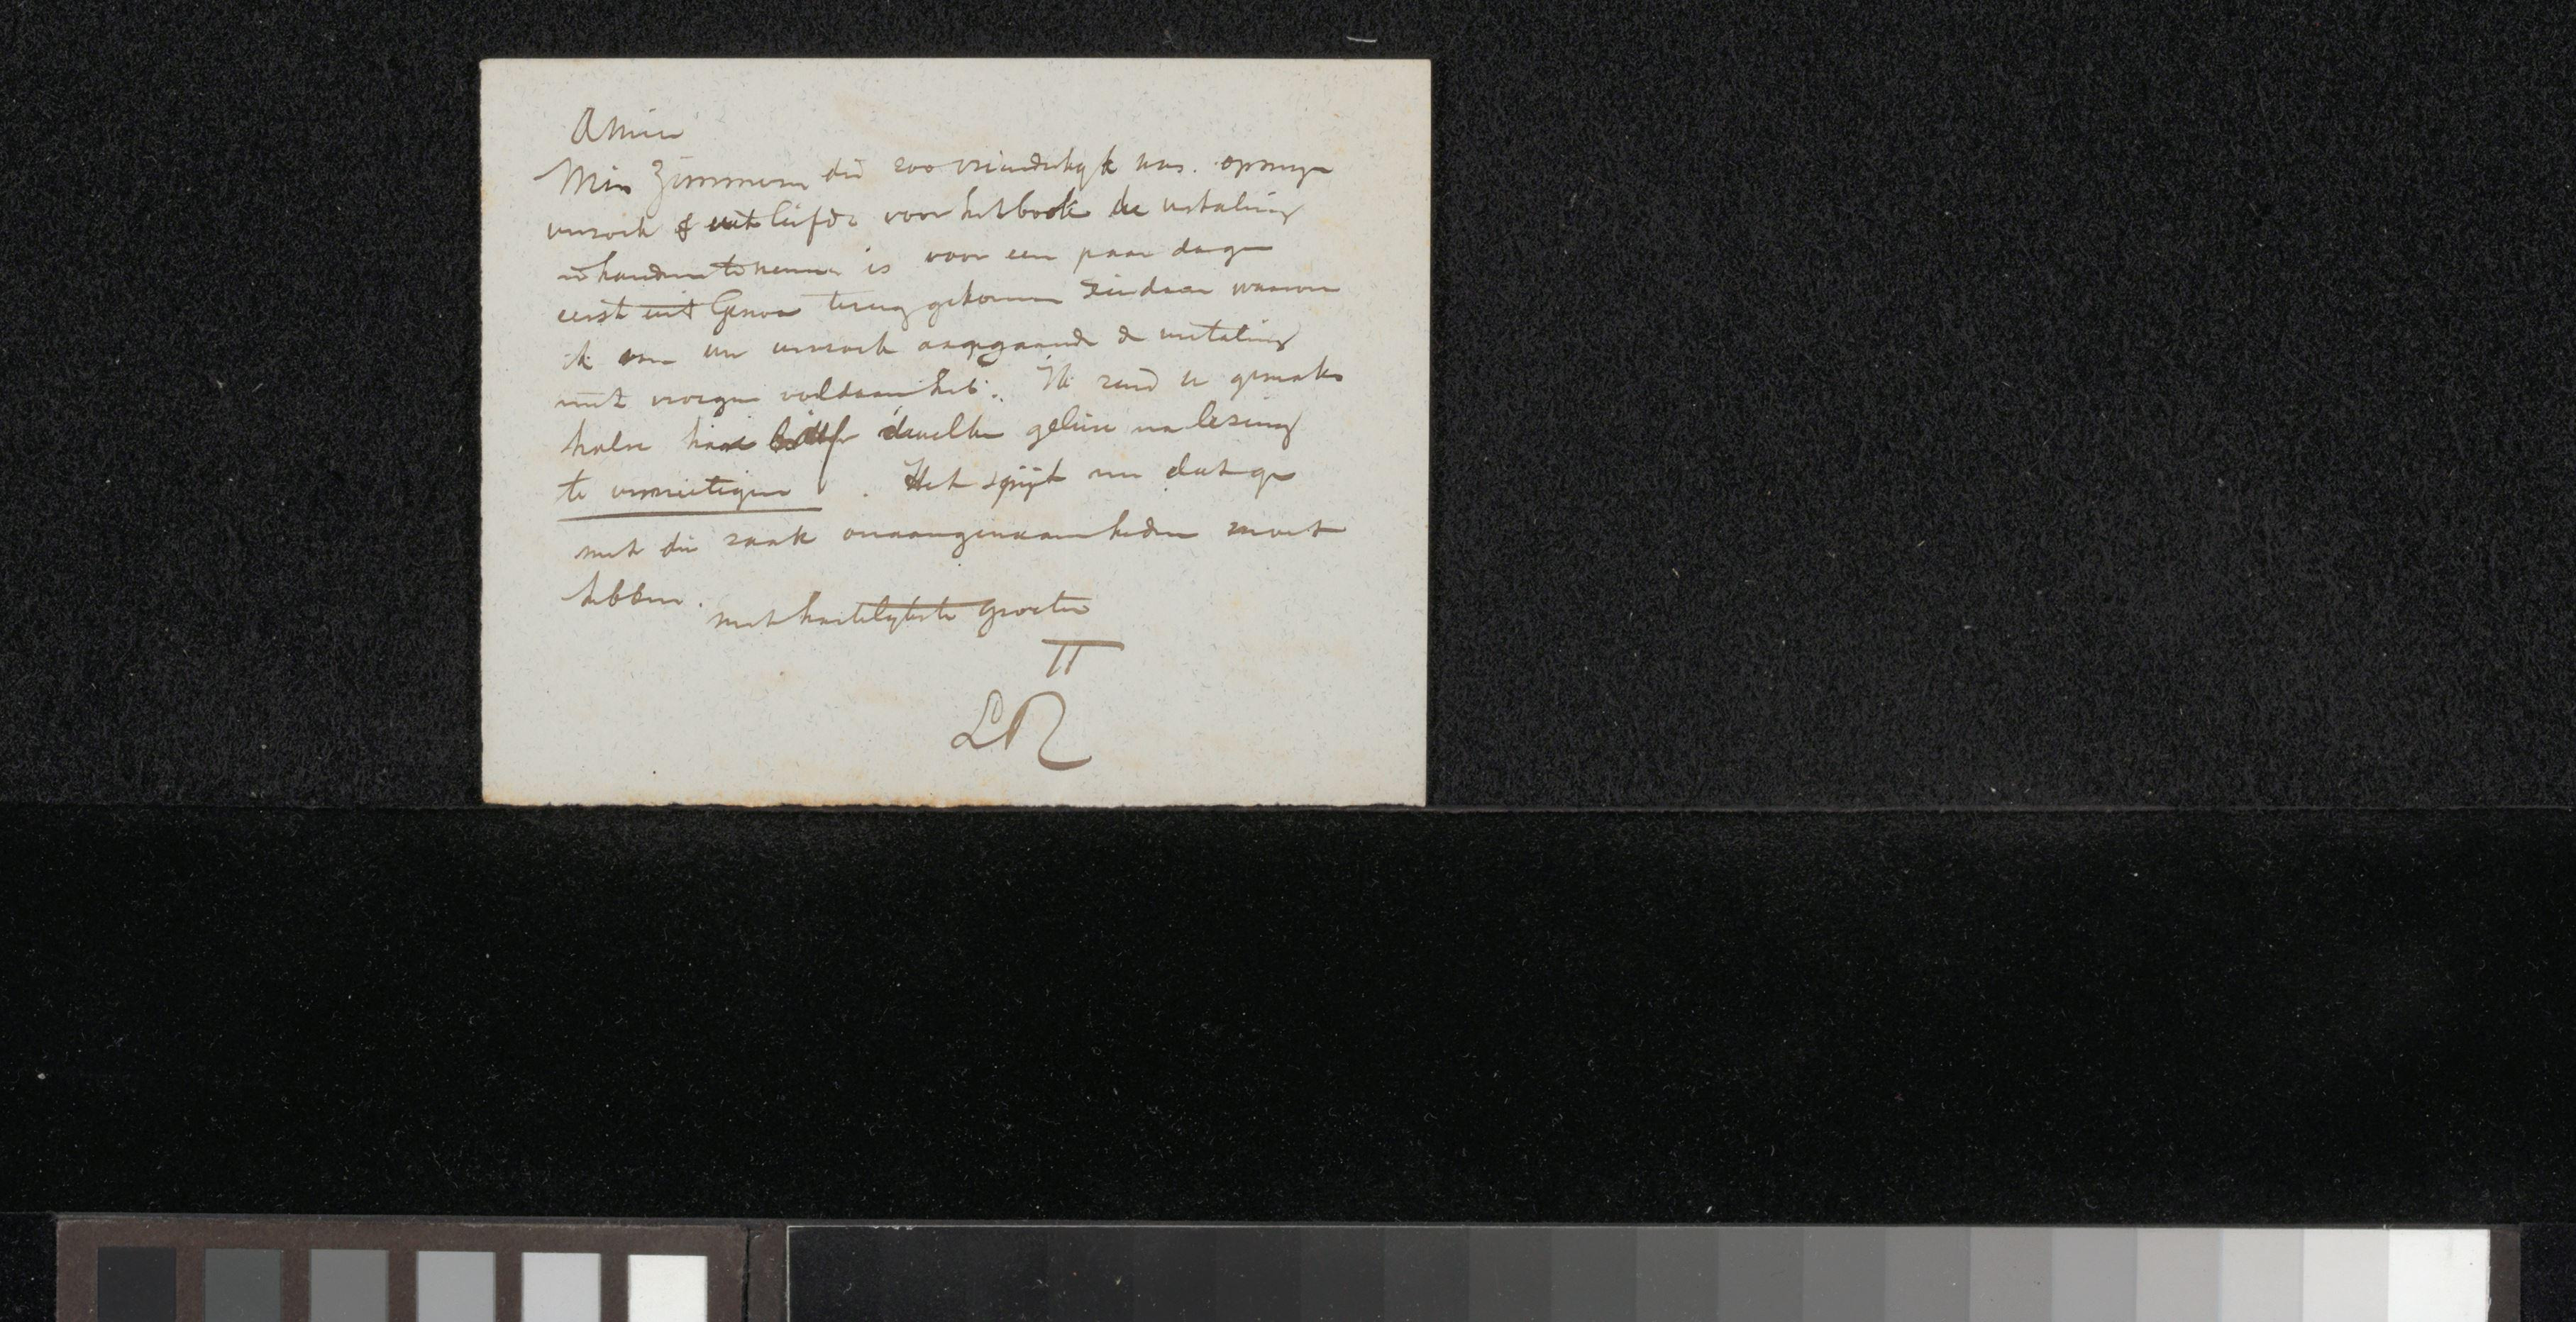 Amice
Miss Zimmern die zoo vriendelijk was. op mijn
verzoek & uit liefde voor het boek de vertaling
in handen te nemen is voor een paar dagen
eerst uit Genoa terug gekomen ziedaar waarom
ik aan uw verzoek aangaande de vertaling
niet vroeger voldaan heb. Ik zend u gemaks
halve haar brief dewelke gelieve na lezing
te vernietigen. Het spijt me dat ge
met die zaak onaangenaamheden moet
hebben.
met hartelykste groeten
TT
LR